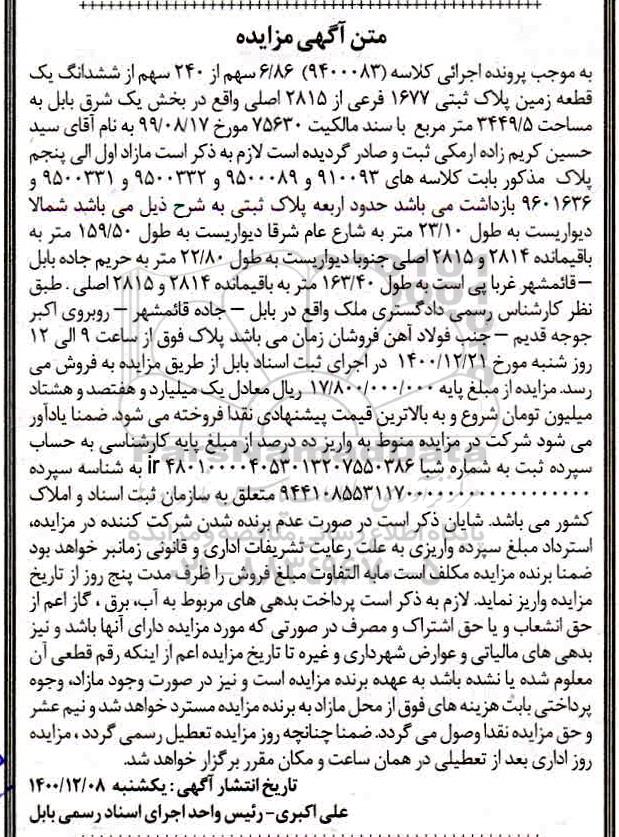 متن آگهی مزایده
به موجب پرونده اجرائی کلاسه (۹۴۰۰۰۸۳) ۶/۸۶ سهم از ۲۴۰ سهم از ششدانگ یک
قطعه زمین پلاک ثبتی ۱۶۷۷ فرعی از ۲۸۱۵ اصلی واقع در بخش یک شرق بابل به
مساحت ۳۴۴۹/۵ متر مربع با سند مالکیت ۷۵۶۳۰ مورخ ۹۹/۰۸/۱۷ به نام آقای سید
حسین کریم زاده ارمکی ثبت و صادر گردیده است لازم به ذکر است مازاد اول الی پنجم
پلاک مذکور بابت کلاسه های ۹۱۰۰۹۳ و ۹۵۰۰۰۸۹ و ۹۵۰۰۳۳۲ و ۹۵۰۰۳۳۱ و
۹۶۰۱۶۳۶ بازداشت می باشد حدود اربعه پلاک ثبتی به شرح ذیل می باشد شمالا
دیواریست به طول ۲۳/۱۰ متر به شارع عام شرقا دیواریست به طول ۱۵۹/۵۰ متر به
باقیمانده ۲۸۱۴ و ۲۸۱۵ اصلی جنوبا دیواریست به طول ۲۲/۸۰ متر به حریم جاده بابل
– قائمشهر غربا پی است به طول ۱۶۳/۴۰ متر به باقیمانده ۲۸۱۴ و ۲۸۱۵ اصلی . طبق
نظر کارشناس رسمی دادگستری ملک واقع در بابل – جاده قائمشهر – روبروی اکبر
جوجه قدیم – جنب فولاد آهن فروشان زمان می باشد پلاک فوق از ساعت ۹ الی ۱۲
روز شنبه مورخ ۱۴۰۰/۱۲/۲۱ در اجرای ثبت اسناد بابل از طریق مزایده به فروش می
رسد. مزایده از مبلغ پایه ۱۷/۸۰۰/۰۰۰/۰۰۰ ریال معادل یک میلیارد و هفتصد و هشتاد
میلیون تومان شروع و به بالاترین قیمت پیشنهادی نقدا فروخته می شود. ضمنا یادآور
می شود شرکت در مزایده منوط به واریز ده درصد از مبلغ پایه کارشناسی به حساب
سپرده ثبت به شماره شبا ir ۴۸۰۱۰۰۰۰۴۰۵۳۰۱۳۲۰۷۵۵۰۳۸۶ به شناسه سپرده
متعلق به سازمان ثبت اسناد و املاک
کشور می باشد. شایان ذکر است در صورت عدم برنده شدن شرکت کننده در مزایده،
استرداد مبلغ سپرده واریزی به علت رعایت تشریفات اداری و قانونی زمانبر خواهد بود
ضمنا برنده مزایده مکلف است مابه التفاوت مبلغ فروش را ظرف مدت پنج روز از تاریخ
مزایده واریز نماید. لازم به ذکر است پرداخت بدهی های مربوط به آب، برق ، گاز اعم از
حق انشعاب و یا حق اشتراک و مصرف در صورتی که مورد مزایده دارای آنها باشد و نیز
بدهی های مالیاتی و عوارض شهرداری و غیره تا تاریخ مزایده اعم از اینکه رقم قطعی آن
معلوم شده یا نشده باشد به عهده برنده مزایده است و نیز در صورت وجود مازاد، وجوه
پرداختی بابت هزینه های فوق از محل مازاد به برنده مزایده مسترد خواهد شد و نیم عشر
و حق مزایده نقدا وصول می گردد. ضمنا چنانچه روز مزایده تعطیل رسمی گردد ، مزایده
روز اداری بعد از تعطیلی در همان ساعت و مکان مقرر برگزار خواهد شد.
تاریخ انتشار آگهی : یکشنبه ۱۴۰۰/۱۲/۰۸
علی اکبری- رئیس واحد اجرای اسناد رسمی بابل